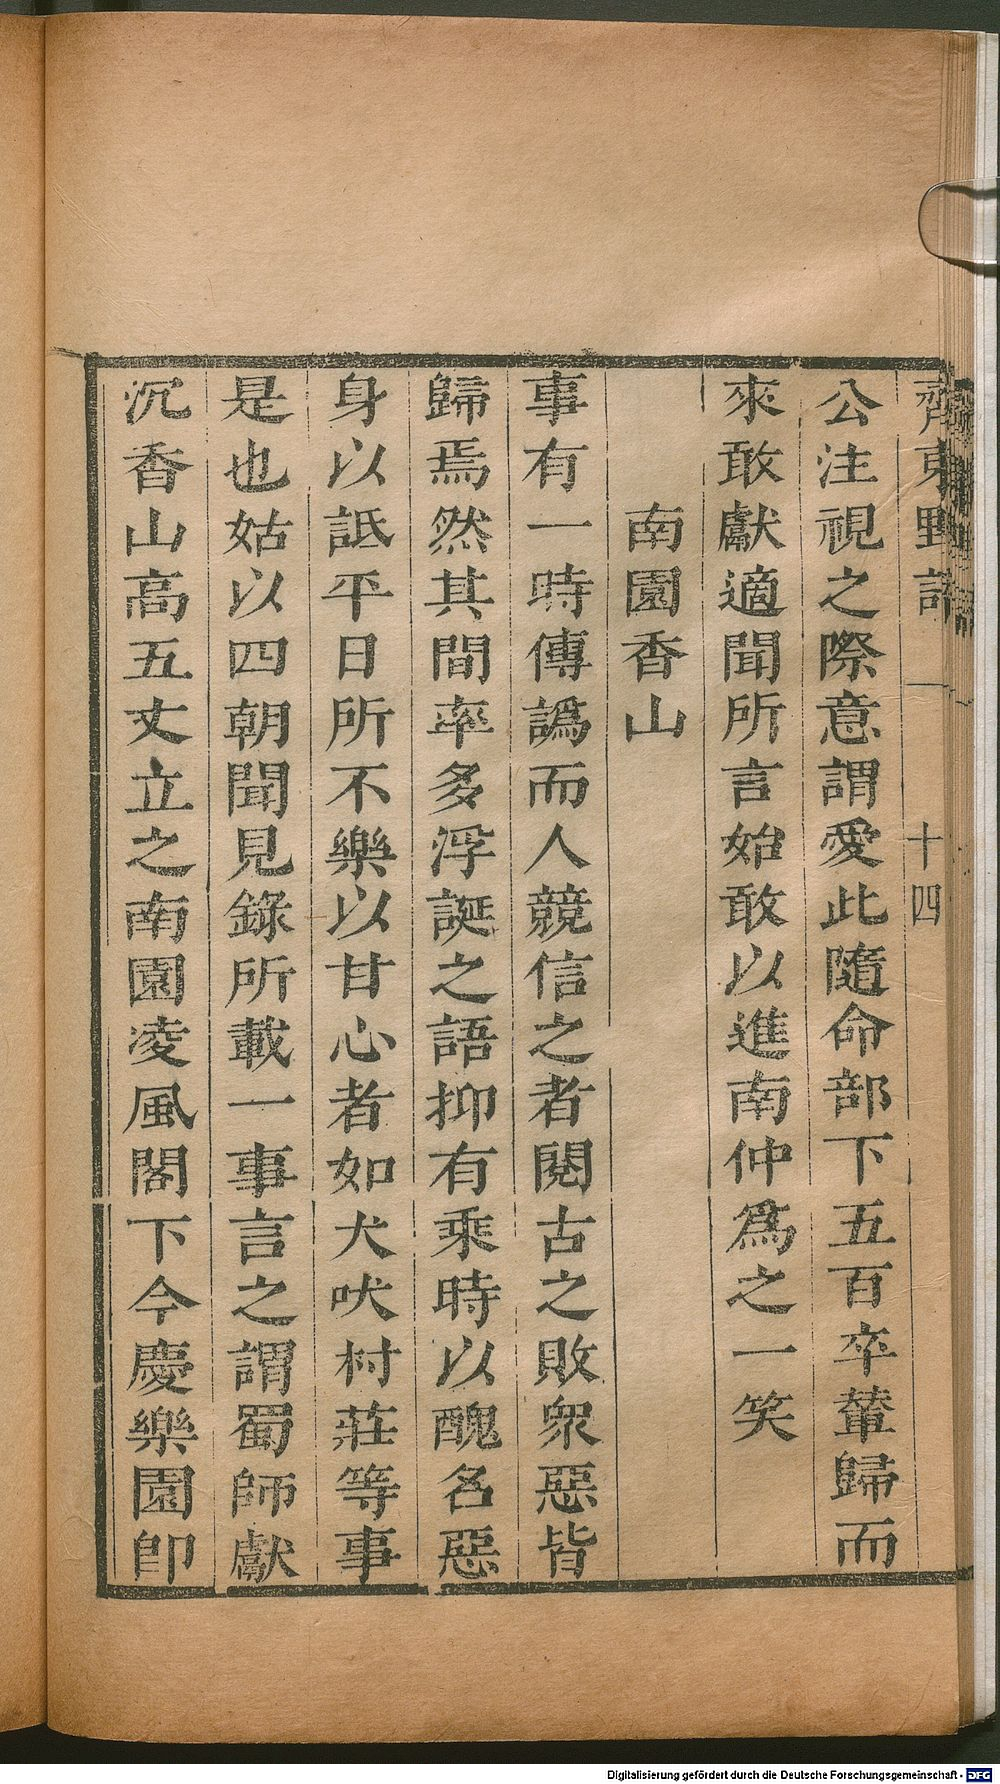 齊東野語 一 十四
公注視之際意謂愛此隨命部下五百卒輦歸而
來敢獻適聞所言始敢以進南仲爲之一笑
南園香山
事有一時傳譌而人競信之者閱古之敗衆惡皆
歸焉然其間率多浮誕之語抑有乘時以醜名惡
身以詆平日所不樂以甘心者如犬吠村莊等事
是也姑以四朝聞見錄所載一事言之謂蜀師獻
沉香山高五丈立之南園凌風閣下今慶樂園卽
Digitalisierung gefördert durch die Deutsche Forschungsgemeinschaft - DFG